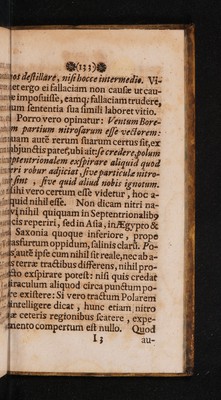 (133)
nos destillare, nisi hocce intermedio. Vi-
et ergo ei fallaciam non causæ ut cau-
imposuisse, eamq; fallaciam trudere,
um sententia sua simili laboret vitio.
Porro vero opinatur: Ventum Bore-
m partium nitrosarum esse vectorem:
quam autē rerum suarum certus sit, ex
ubjunctis patet, ubi ait: se credere, polum
ptentrionalem exspirare aliquid quod
eri robur adjiciat, sive particulæ nitro-
sint, sive quid aliud nobis ignotum.
ihi vero certum esse videtur, hoc a-
quid nihil esse. Non dicam nitri na-
vi, nihil quiquam in Septentrionalibꝰ
cis reperiri, sed in Asia, in Ægypto &
Saxonia quoque inferiore, prope
asfurtum oppidum, salinis clarū. Po-
autē ipse cum nihil sit reale, nec ab a-
s terræ tractibus differens, nihil pro-
cto exspirare potest: nisi quis credat
iraculum aliquod circa punctum po-
re existere: Si vero tractum Polarem
intelligere dicat, hunc etiam nitro
æ ceteris regionibus scatere, expe-
mento compertum est nullo. Quod
I 3 au-